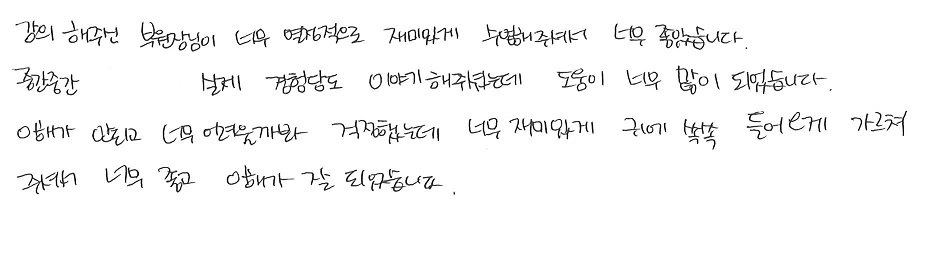 강의 해주신 복원장님이 너무 열정적으로 재미있게 수업해주셔서 너무 좋았습니다.
중간중간 실제 경험담도 이야기해주셨는데 도움이 너무 많이 되었습니다.
이해가 안되고 너무 어려울까봐 걱정했는데 너무 재미있게 귀에 쏙쏙 들어오게 가르쳐
주셔서 너무 좋고 이해가 잘 되었습니다.